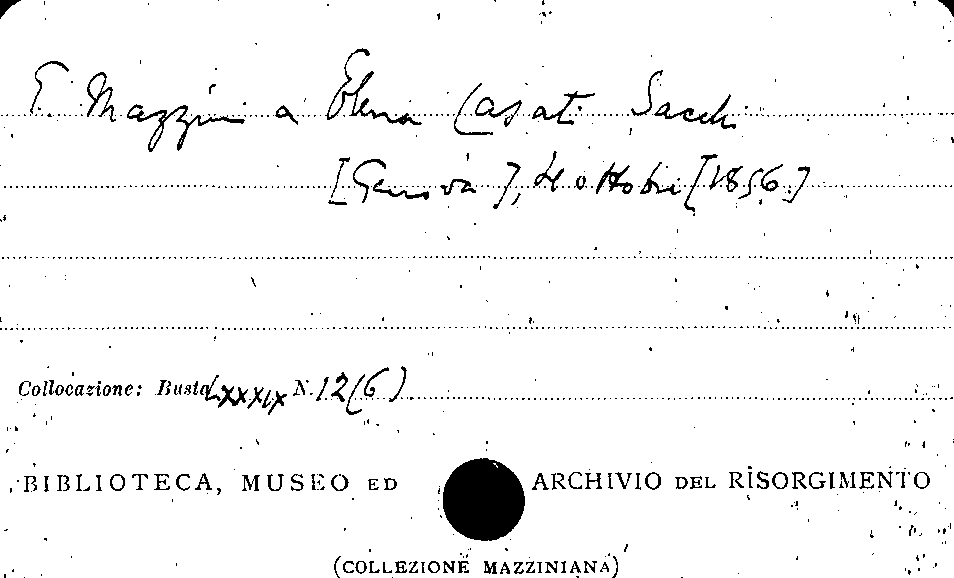 G. Mazzini a Elena Casati Sacchi
[Genova], 4 ottobre [1856.]
Collocazione: Busta LXXXIX N. 12(6)
BIBLIOTECA, MUSEO ED ARCHIVIO DEL RISORGIMENTO
(COLLEZIONE MAZZINIANA)